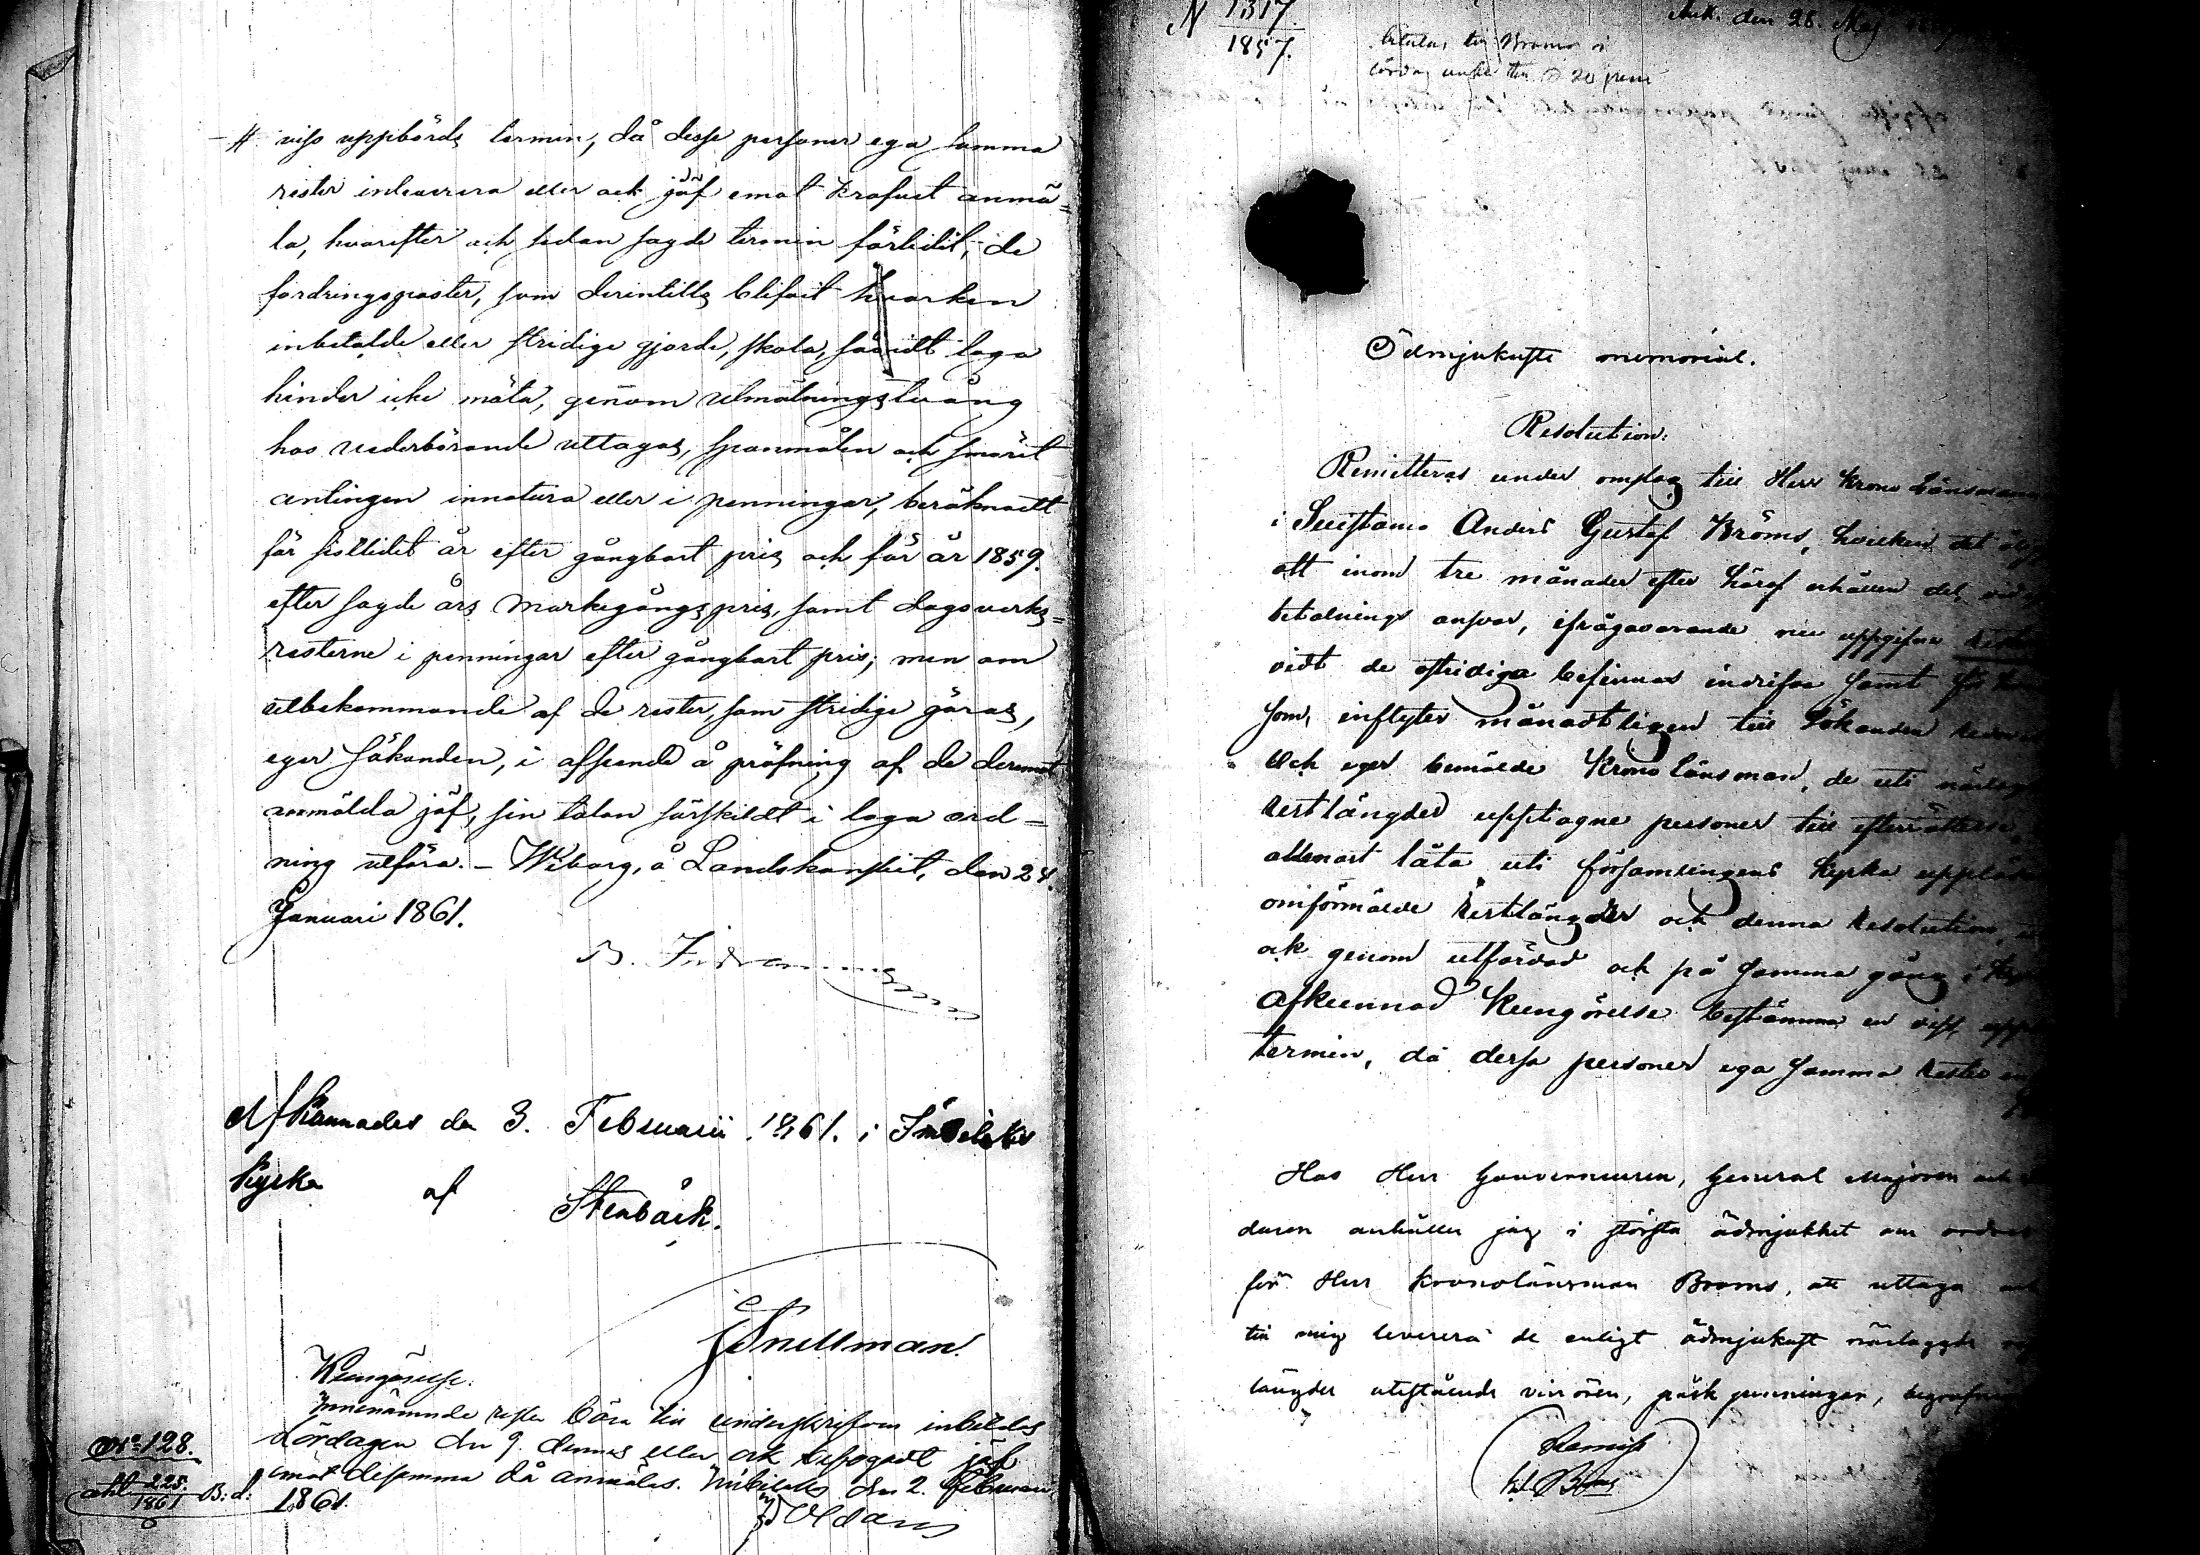 # viss uppbörds termin, då desse personer ega samma
rester inleverera eller ock jäf emot krafvet anmä=
la, hvarefter och sedan sagde termin förlidit, de
fordringsposter, som derintills blifvit hvarken
inbetalde eller stridige gjorde, skola, såvidt laga
hinder icke möta, genom utmätningstvång
hos vederbörande uttagas, spanmålen och smöret
antingen innatura eller i penningar, beräknadt
för sistlidet år efter gångbart pris och för år 1859.
efter sagde års markegångspris, samt dagsverks=
resterne i penningar efter gångbart pris; men om
utbekommande af de rester, som stridige göras,
eger sökanden, i afseende å pröfning af de deremot
anmälda jäf, sin talan särskildt i laga ord=
ning utföra. – Wiborg, å Landskansliet, den 24.
Januari 1861.
Afkunnades den 3. Februarii 1861. i Imbilaks
kyrka af
Stenbäck.
Snellman.
Kungörelse.
Innenämnde rester böra till underskrifven inbetalas
Lördagen den 9. dennes eller ock befogadt jäf
emot desamma då anmälas. Imbilaks den 2. Februari
1861.
No 128.
225.
1861 B: d:
N 1317.
1857.
Ank. den 28. Maj
Ödmjukaste memorial.
Resolution:
Remitteras under omslag till Herr Krono Länsmannen
i Suistamo Anders Gustaf Broms, hvilken det
att inom tre månader efter häraf erhållen del, vid
betalnings ansvar, ifrågavarande nu uppgifne
vidt de ostridiga befinnas indrifva samt
som inflyter månadtligen till Sökanden
Och eger bemälde Krono länsman, de uti
Restlängder upptagne personer till efterrättelse,
allenast låta uti församlingens kyrka
omförmälde Restlängder och denna Resolution,
ock genom utfärdad och på samma gång i
afkunnad Kungörelse bestämma en viss
termin, då dessa personer ega samma rester
Hos Herr Gouverneuren, General Majoren och
daren anhåller jag i största ödmjukhet om
för Herr Kronolänsman Broms, att uttaga
till mig leverera de enligt ödmjukast närlaggde
längder utestående vin ören, påsk penningar,